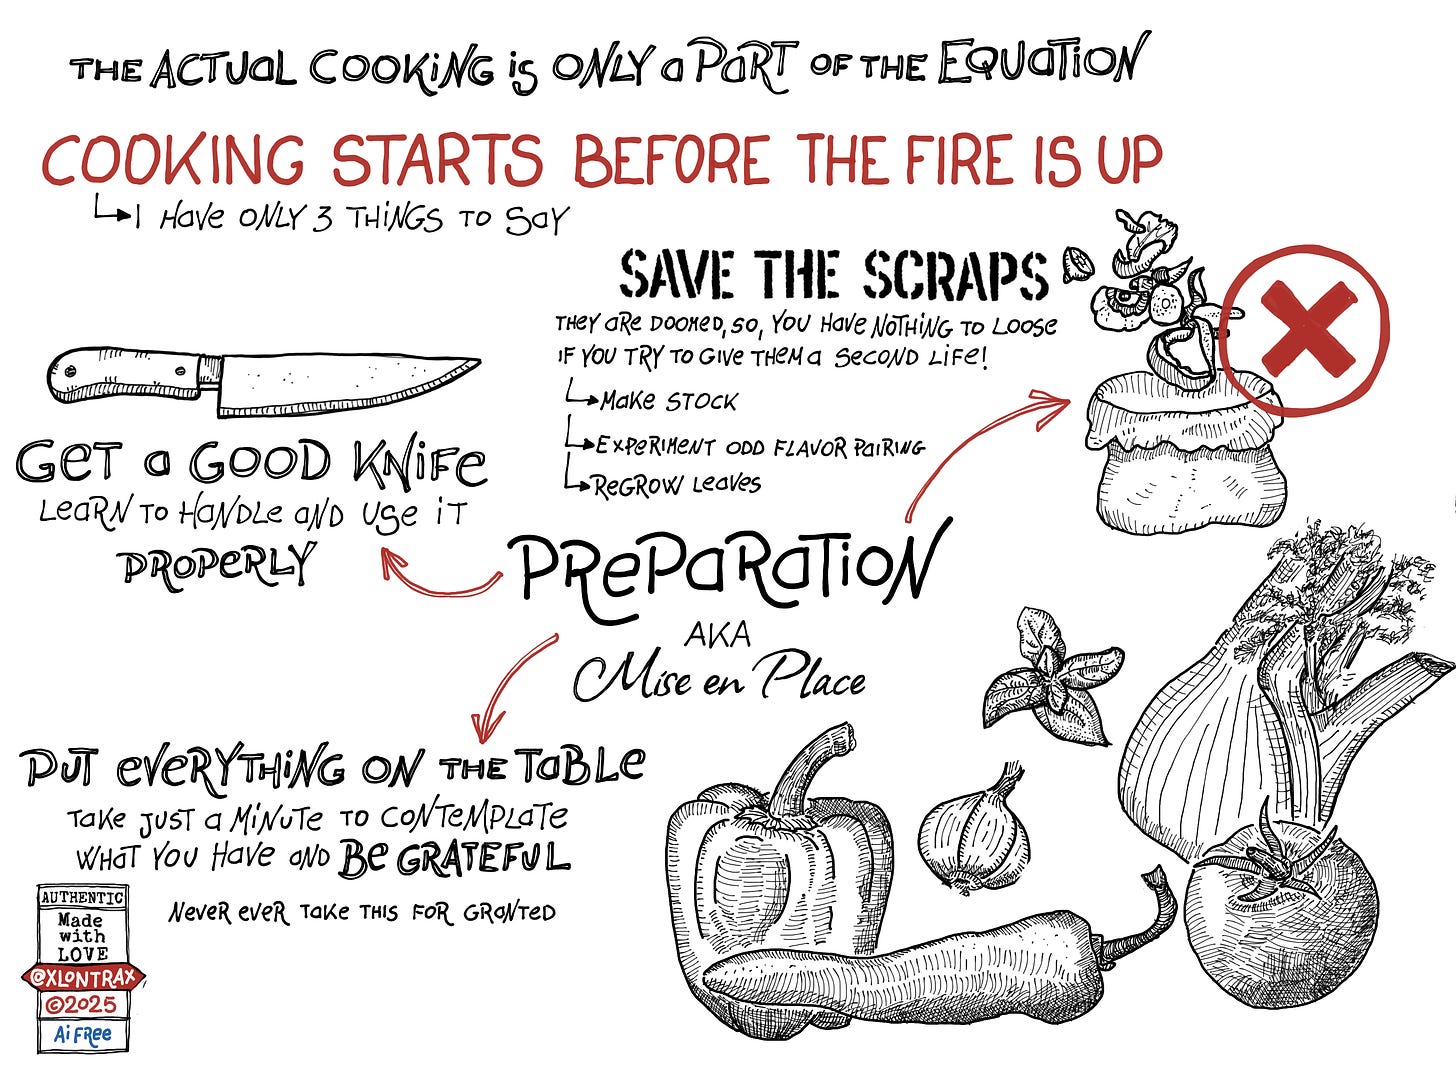 THE ACTUAL COOKING is ONLY a PART OF THE EQUATION
COOKING STARTS BEFORE THE FIRE IS UP
I HAVE ONLY 3 THINGS TO SAY
SAVE THE SCRAPS
THEY ARE DOOMED, SO, YOU HAVE NOTHING TO LOOSE
IF YOU TRY TO GIVE THEM a SECOND LIFE!
MAKE STOCK
EXPERIMENT ODD FLAVOR PAIRING
REGROW LEAVES
GET a GOOD KNIFE
LEARN TO HANDLE AND USE IT
PROPERLY
PREPARATION
AKA
Mise en Place
PUT EVERYTHING ON THE TABLE
TAKE JUST a MINUTE TO CONTEMPLATE
WHAT YOU HAVE AND BE GRATEFUL
NEVER EVER TAKE THIS FOR GRANTED
AUTHENTIC
Made
with
LOVE
@XLONTRAX
©2025
Ai FREE